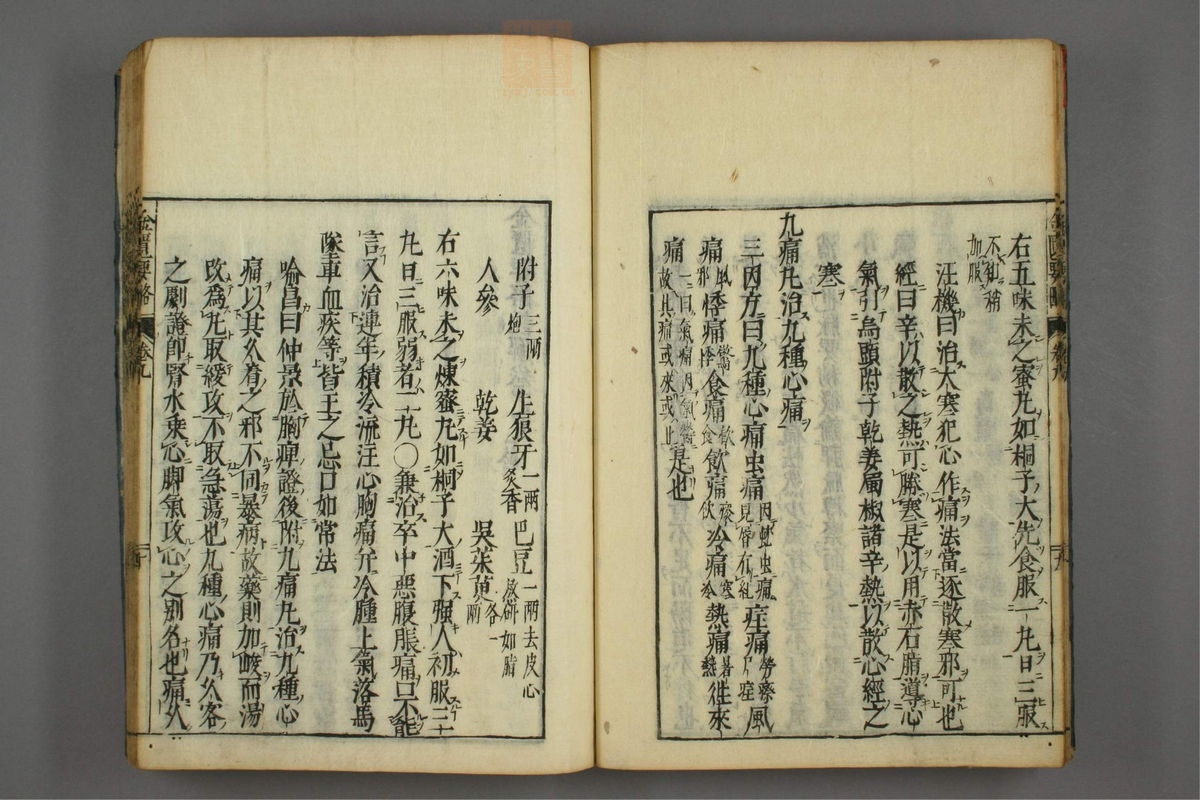 右五味末之蜜丸如桐子大先食服一丸日三服
不知稍
加服
汪機曰治大寒犯心作痛法當逐散寒邪可也
經曰辛以散之熱可勝寒是以用赤石脂導心
氣引烏頭附子乾姜蜀椒諸辛熱以散心經之
寒
九痛丸治九種心痛
三因方曰九種心痛虫痛
疰痛
風
痛
悸痛
食痛
飲痛
冷痛
熱痛
往來
痛
是也
附子
三兩
炮
生狼牙
一兩
炙香
巴豆
一兩去皮心
熬研如脂
人參
乾姜
吳茱萸
各一
兩
右六味末之煉蜜丸如桐子大酒下强人初服三
丸日三服弱者二丸○兼治卒中惡腹脹痛口不能
言又治連年積冷流注心胸痛并冷腫上氣落馬
墜車血疾等皆主之忌口如常法
喻昌曰仲景於胸痺證後附九痛丸治九種心
痛以其久着之邪不同暴病故藥則加峻而湯
改為丸取緩攻不取急蕩也九種心痛乃久客
之劇證即腎水乘心脚氣攻心之别名也痛久